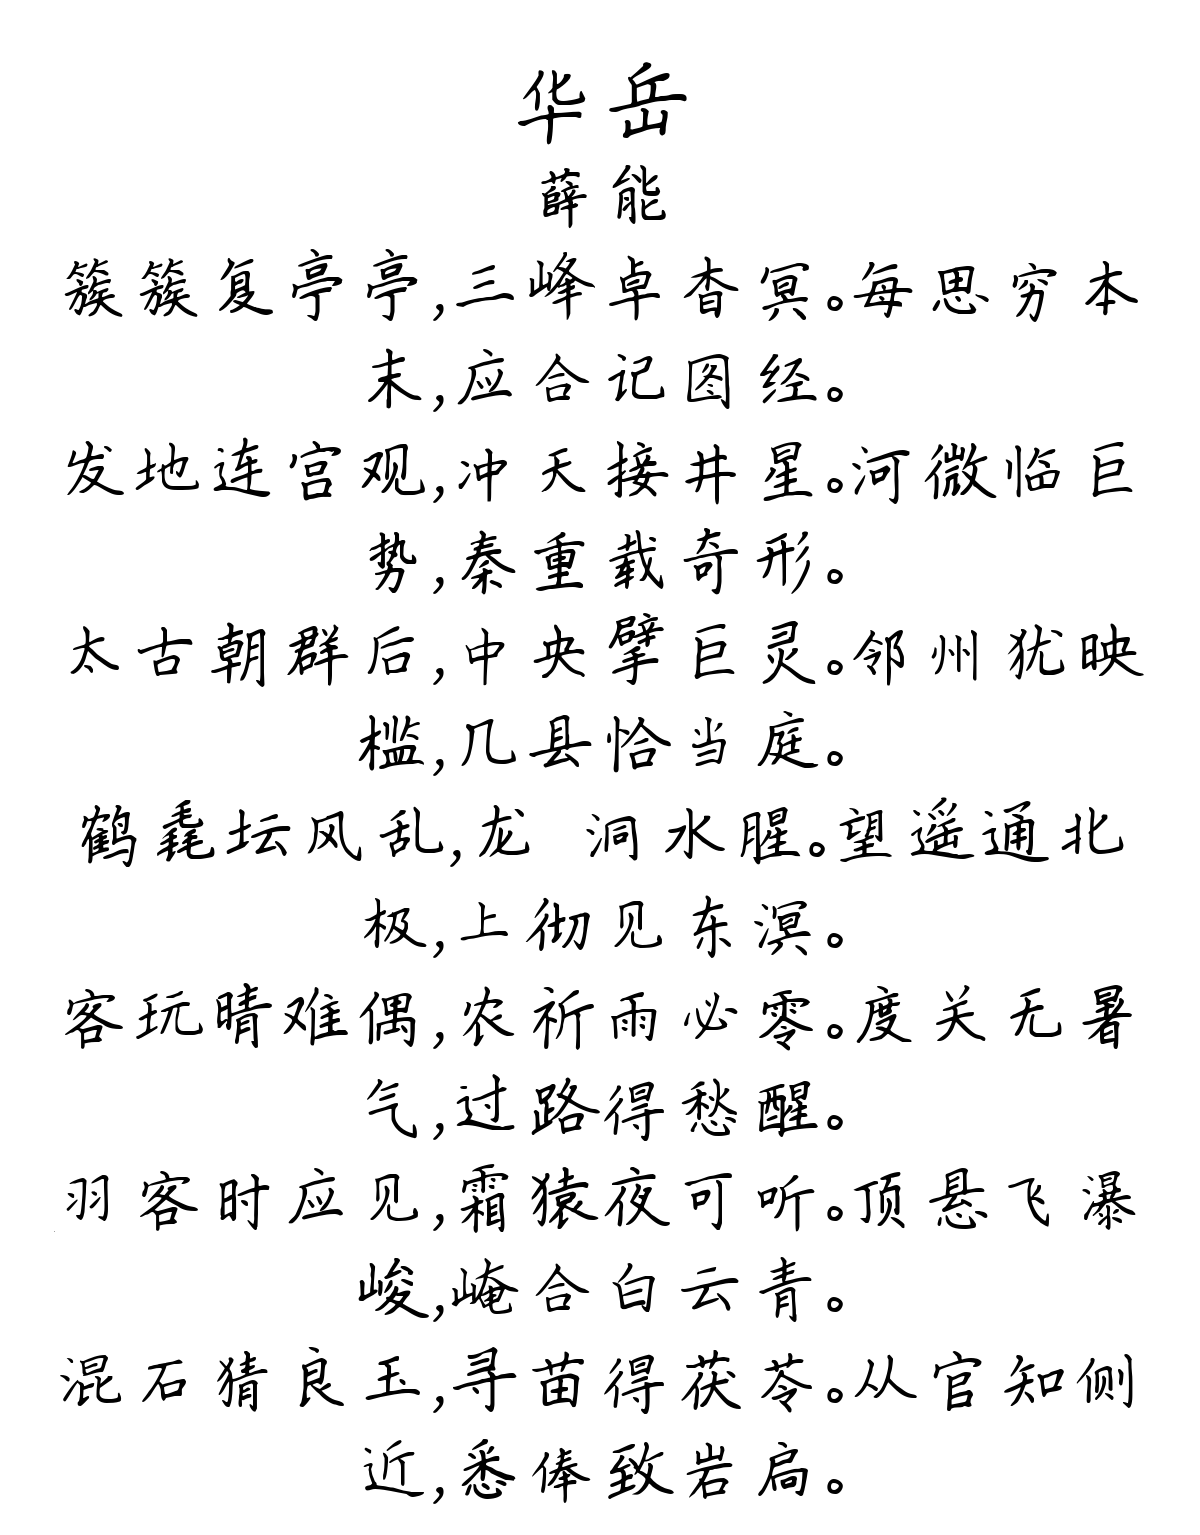 华岳
薛能
簇簇复亭亭,三峰卓杳冥。每思穷本
末,应合记图经。
发地连宫观,冲天接井星。河微临巨
势,秦重载奇形。
太古朝群后,中央擘巨灵。邻州犹映
槛,几县恰当庭。
鹤毳坛风乱,龙 洞水腥。望遥通北
极,上彻见东溟。
客玩晴难偶,农祈雨必零。度关无暑
气,过路得愁醒。
羽客时应见,霜猿夜可听。顶悬飞瀑
峻,崦合白云青。
混石猜良玉,寻苗得茯苓。从官知侧
近,悉俸致岩扃。